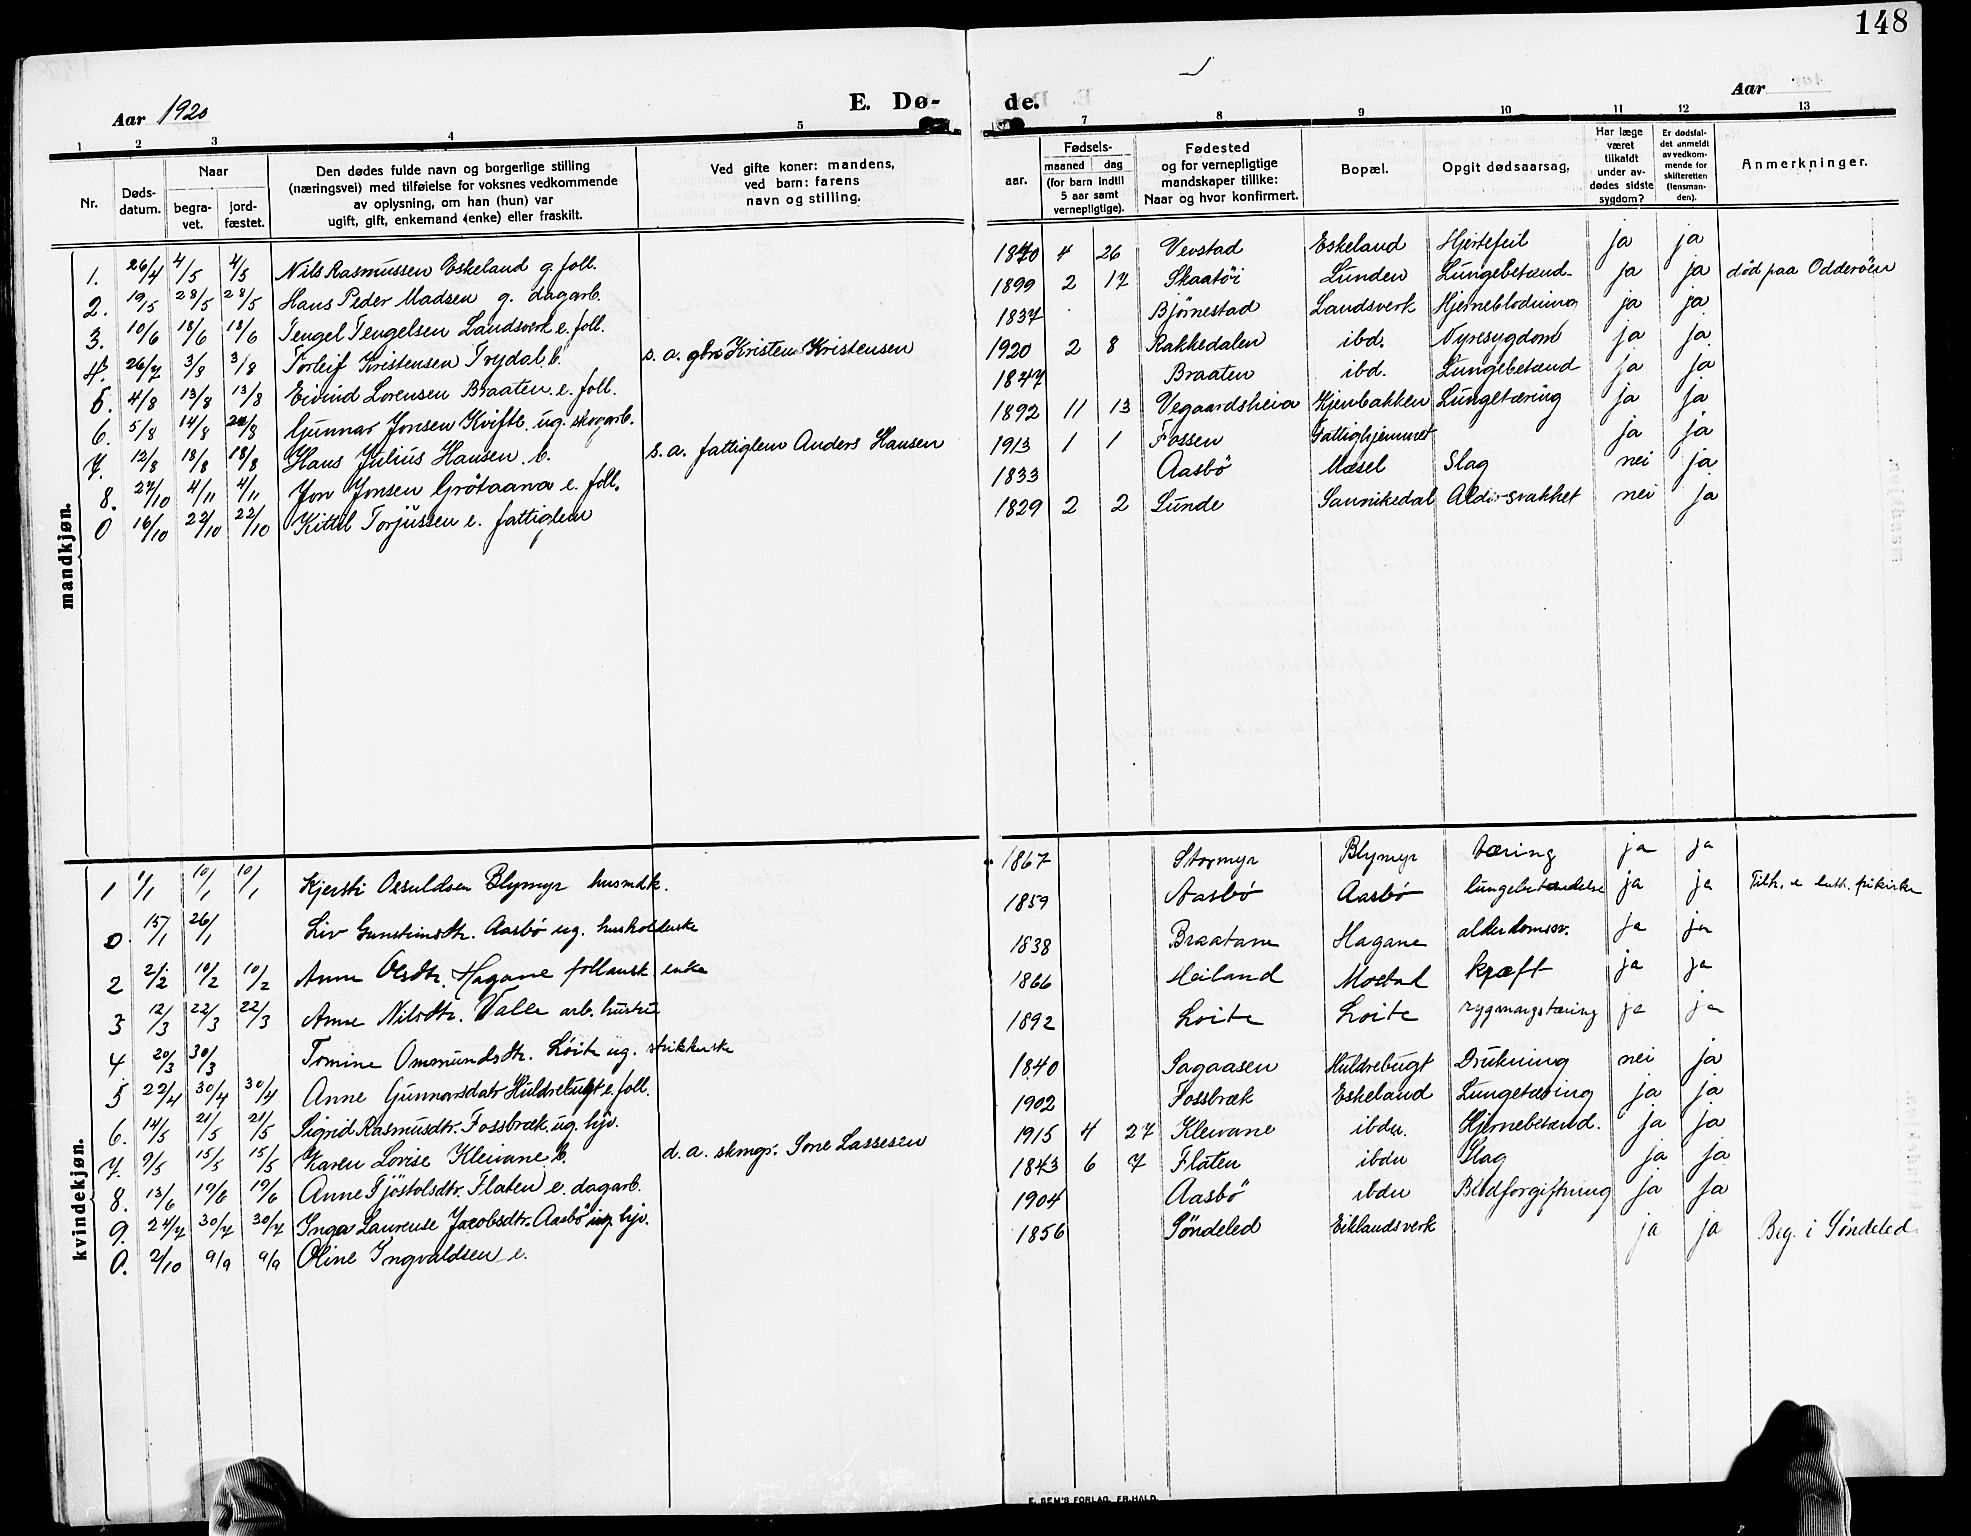 148
Aar 1920 E. Dø- de. Aar
1 2 3 4 5 7 8 9 10 11 12 13
Nr. Døds-datum. Naar begra-vet. jord-fæstet. Den dødes fulde navn og borgerlige stilling (næringsvei) med tilføielse for voksnes vedkommende av oplysning, om han (hun) var ugift, gift, enkemand (enke) eller fraskilt. Ved gifte koner: mandens, ved barn: farens navn og stilling. aar. Fødsels- maaned dag (for barn indtil 5 aar samt vernepligtige). Fødested og for vernepligtige mandskaper tillike: Naar og hvor konfirmert. Bopæl. Opgit dødsaarsag, Har læge været tilkaldt under av-dødes sidste sygdom? Er dødsfal-det anmeldt av vedkom-mende for skifteretten (lensman-den). Anmerkninger.
mandkjøn.
1. 26/4 4/5 4/5 Nils Rasmussen Eskeland g. foll. 1840 4 26 Vevstad Eskeland Hjertefeil ja ja
2. 19/5 28/5 28/5 Hans Peder Madsen g. dagarb. 1899 2 17 Skaatöi Lunden Lungebetænd- ja ja død paa Odderöen
3. 10/6 18/6 18/6 Tengel Tengelsen Landsverk e. foll. 1837 Björnestad Landsverk Hjerneblödning ja ja
4. 26/7 3/8 3/8 Torleif Kristensen Trydal b. s. a. gbr Kristen Kristensen 1920 2 8 Rakkedalen ibd. Nyresygdom ja ja
5. 4/8 13/8 13/8 Eivind Lorensen Braaten e. foll. 1847 Braaten ibd. Lungebetænd ja ja
6. 5/8 14/8 /8 Gunnar Jonsen Kvifte ug. skogarb. 1892 11 13 Vegaardsheia Kjenbakken Lungetæring ja ja
7. 12/8 18/8 18/8 Hans Julius Hansen b. s. a. fattiglem Anders Hansen 1913 1 1 Fossen Fattighjemmet ja ja
8. 27/10 4/11 4/11 Jon Jonsen Grötaana e. foll. 1833 Aasbö Mæsel Slag nei ja
0 16/10 22/10 22/10 Kittil Torjussen e. fattiglem 1829 2 2 Lunde Sannikedal Aldersvakhet nei ja
kvindekjøn.
1 1/1 10/1 10/1 Kjersti Osuldsen Blymyr husmdk. 1867 Stormyr Blymyr tæring ja ja
0. 15/1 26/1 Liv Gunsteinsdtr. Aasbø ug. husholderske 1859 Aasbø Aasbø lungebetændelse ja ja Tilh. e luth. frikirke
2 2/2 10/2 10/2 Anne Olsdtr. Hagane follaust enke 1838 Braatane Hagane alderdomssv. ja ja
3 12/3 22/3 22/3 Anne Nilsdtr. Valle arb. hustru 1866 Heiland Mostad kræft ja ja
4 20/3 30/3 Tomine Ommundsdtr. Løite ug. strikkerske 1892 Loite Loite rygmargstæring ja ja
5 22/4 30/4 30/4 Anne Gunnarsdatr Huldrebugt e. foll. 1840 Sagaasen Huldrebugt Drukning nei ja
6. 14/5 21/5 21/5 Sigrid Rasmusdtr. Fossbræk ug. hjv. 1902 Fossbræk Eskeland Lungetæring ja ja
7. 9/5 15/5 15/5 Karen Lovise Kleivane b. d. a. skmgr. Sone Lassesen 1915 4 27 Kleivane ibdn. Hjernebetænd. ja ja
8. 13/6 19/6 19/6 Anne Tjöstolsdtr. Flaten e. dagarb. 1843 6 7 Flaten ibdn Slag ja ja
9. 24/7 30/7 30/7 Inga Laurense Jacobsdtr. Aasbö ug hjv. 1904 Aasbö ibdn Blodforgiftning ja ja
0. 2/10 9/9 9/9 Oline Ingvaldsen e. 1856 Söndeled Eiklandsverk ja ja Beg. i Söndeled.
E. SEM'S FORLAG, FR.HALD.